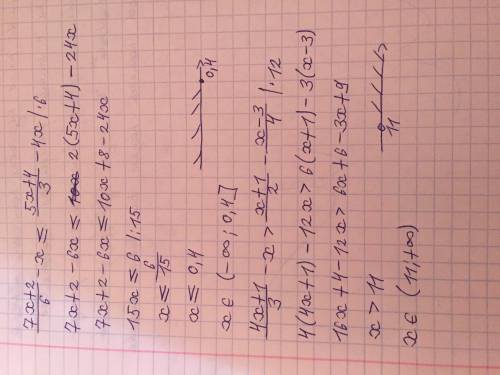 (7x+2)/6 - x ≤ (5x+4)/3 - 4x |·6
7x+2-6x ≤ 2(5x+4)-24x
7x+2-6x ≤ 10x+8-24x
15x ≤ 6 |:15
x ≤ 6/15
x ≤ 0,4
0,4
x ∈ (-∞; 0,4]
(4x+1)/3 - x > (x+1)/2 - (x-3)/4 |·12
4(4x+1)-12x > 6(x+1)-3(x-3)
16x+4-12x > 6x+6-3x+9
x > 11
11
x ∈ (11,+∞)